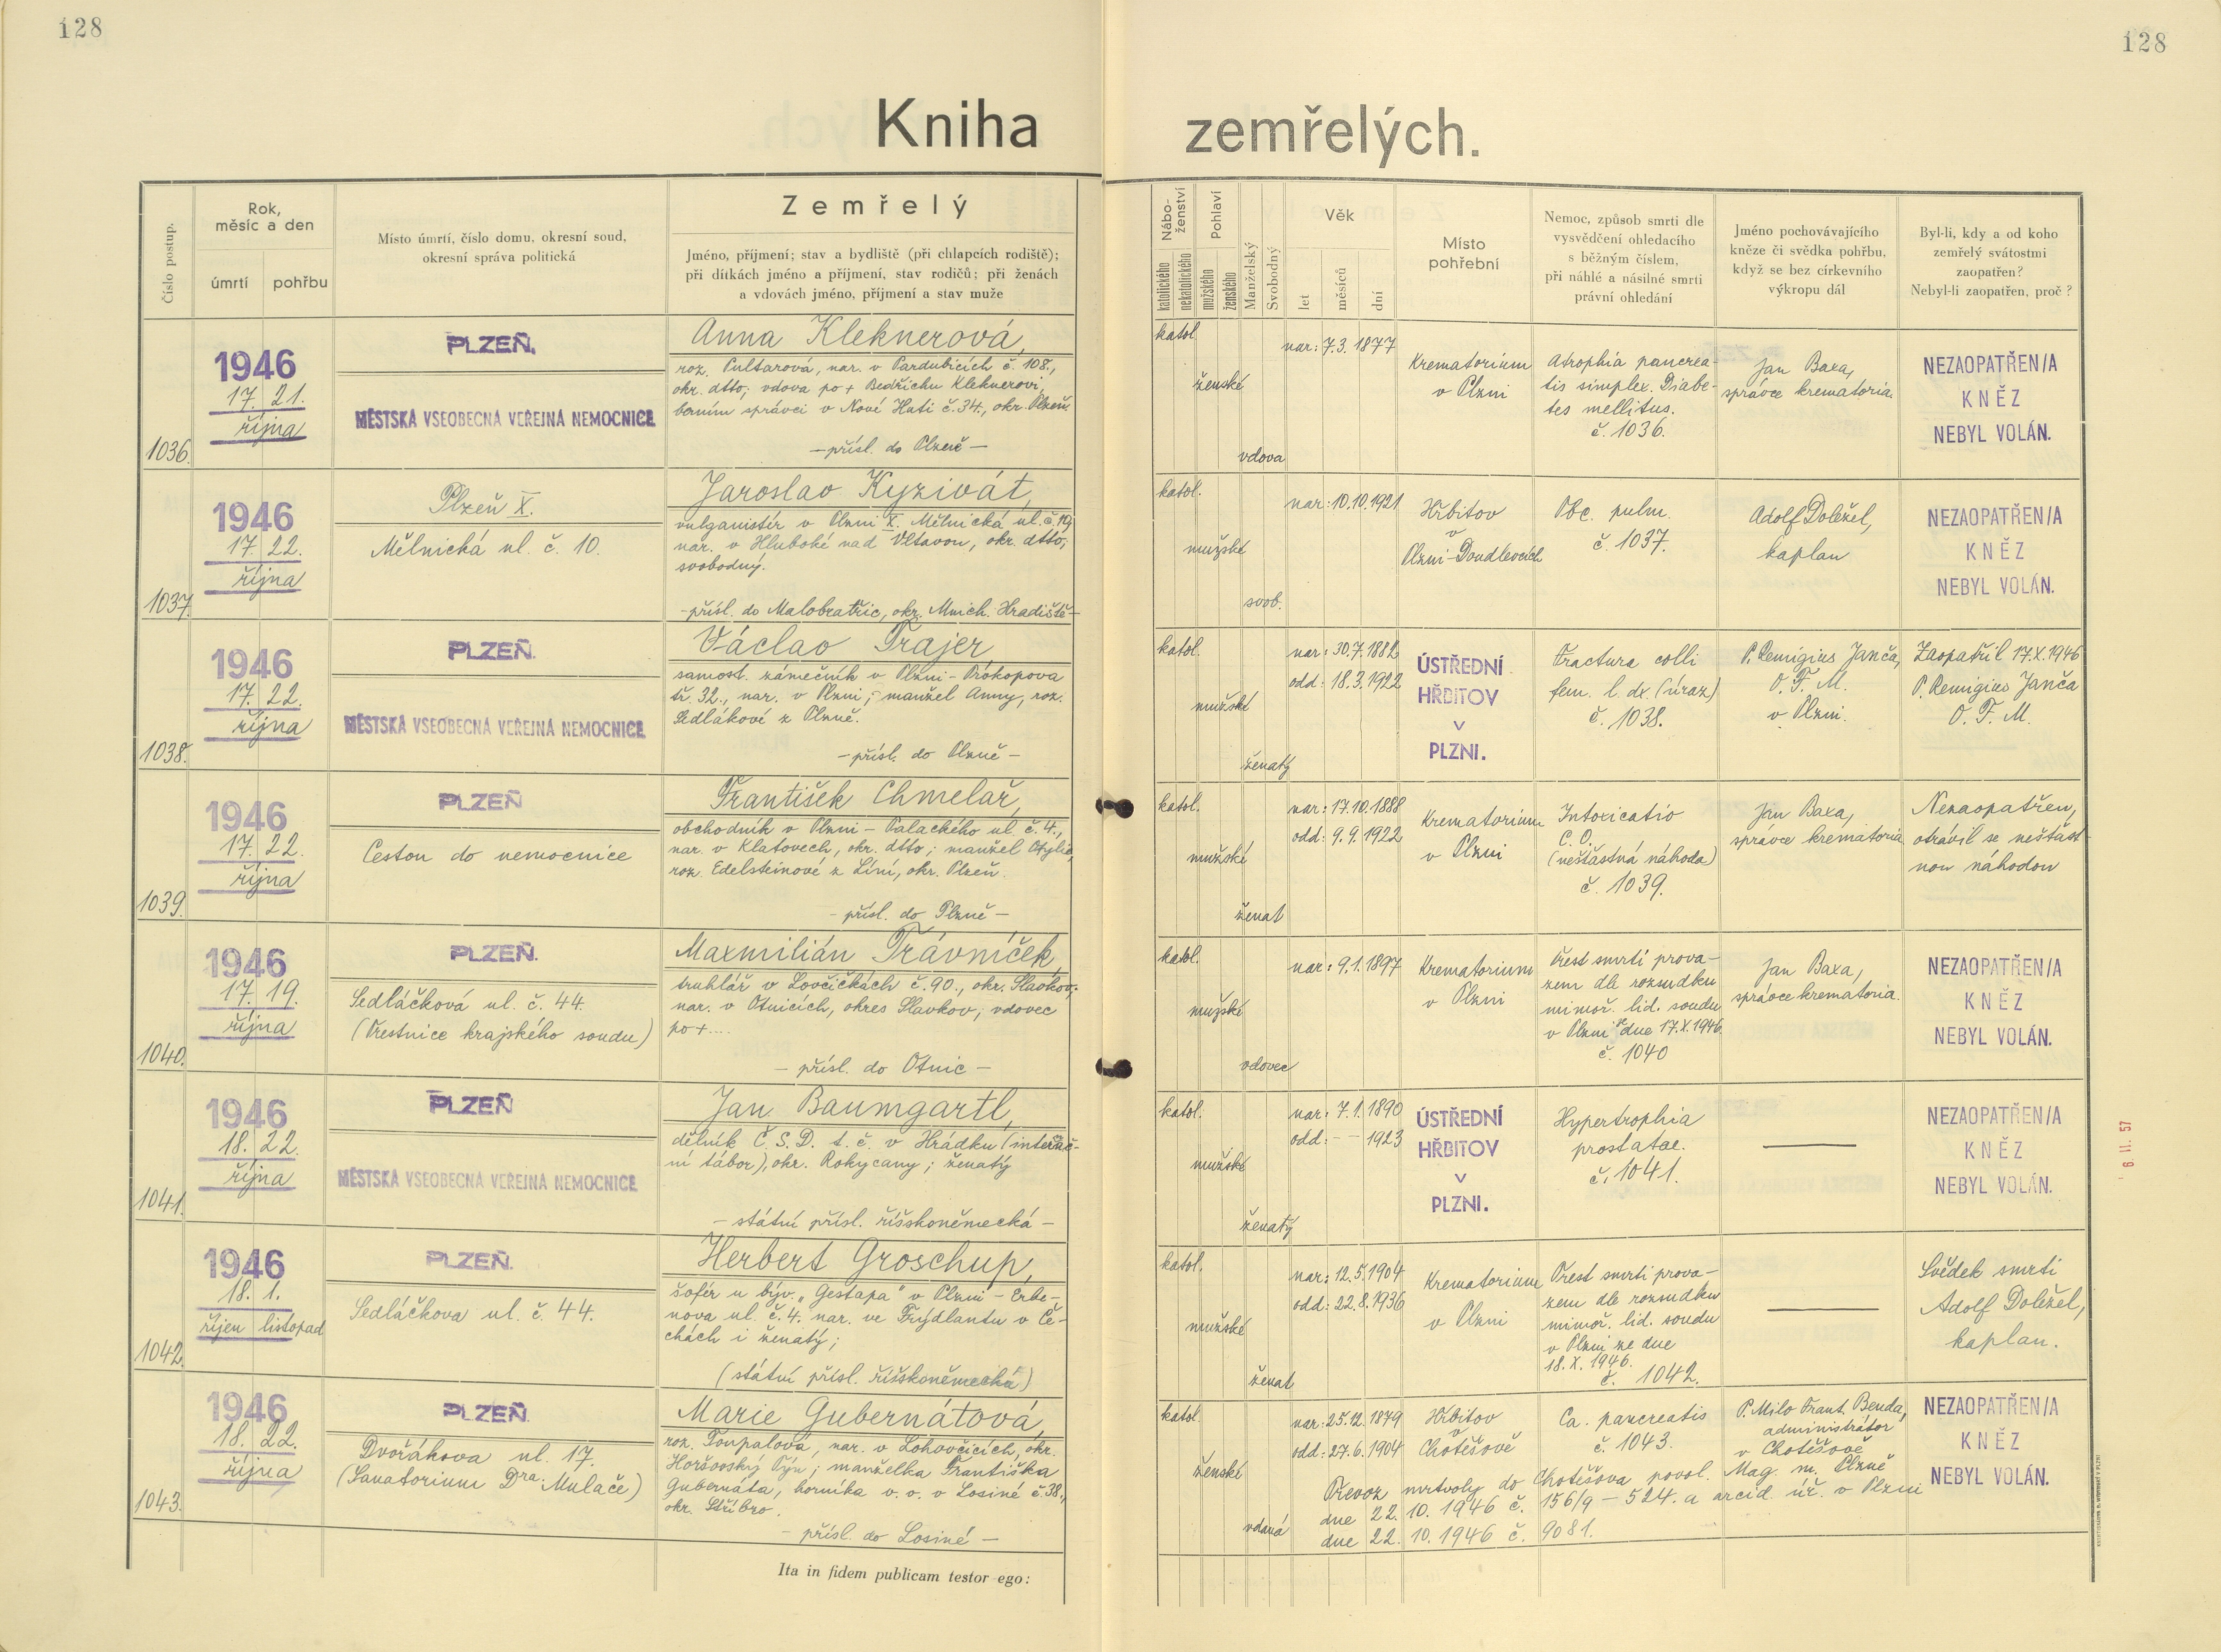 128
128
Kniha zemřelých.
Číslo postup.
Rok,
měsíc a den
úmrtí
pohřbu
Místo úmrtí, číslo domu, okresní soud,
okresní správa politická
Zemřelý
Jméno, příjmení; stav a bydliště (při chlapcích rodiště);
při dítkách jméno a příjmení, stav rodičů; při ženách
a vdovách jméno, příjmení a stav muže
Nábo-
ženství
katolického
nekatolického
Pohlaví
mužského
ženského
Manželský
Svobodný
Věk
let
měsíců
dní
Místo
pohřební
Nemoc, způsob smrti dle
vysvědčení ohledacího
s běžným číslem,
při náhlé a násilné smrti
právní ohledání
Jméno pochovávajícího
kněze či svědka pohřbu,
když se bez církevního
výkropu dál
Byl-li, kdy a od koho
zemřelý svátostmi
zaopatřen?
Nebyl-li zaopatřen, proč?
1036.
1946
17. 21.
října
PLZEŇ.
MĚSTSKÁ VŠEOBECNÁ VEŘEJNÁ NEMOCNICE
Anna Kleknerová,
roz. Pultarová, nar. v Pardubicích č. 108.,
okr. dtto; vdova po + Bedřichu Kleknerovi,
berním správci v Nové Huti č. 34., okr. Plzeň.
—přísl. do Plzně—
katol.
ženské
vdova
nar: 7.3. 1877
Krematorium
v Plzni
Atrophia pancrea-
tis simplex. Diabe-
tes mellitus.
č. 1036.
Jan Baxa,
správce krematoria.
NEZAOPATŘEN/A
KNĚZ
NEBYL VOLÁN.
1037.
1946
17. 22.
října
Plzeň X.
Mělnická ul. č. 10.
Jaroslav Kyzivát,
vulganistér v Plzni X. Mělnická ul. č. 10,
nar. v Hluboké nad Vltavou, okr. dtto;
svobodný.
—přísl. do Malobratřic, okr. Mnich. Hradiště—
katol.
mužské
svob.
nar: 10.10.1921
Hřbitov
v
Plzni-Doudlevcích
Pbc. pulm.
č. 1037.
Adolf Doležel,
kaplan
NEZAOPATŘEN/A
KNĚZ
NEBYL VOLÁN.
1038.
1946
17. 22.
října
PLZEŇ.
MĚSTSKÁ VŠEOBECNÁ VEŘEJNÁ NEMOCNICE
Václav Trajer
samost. zámečník v Plzni-Prokopova
tř. 32., nar. v Plzni; manžel Anny, roz.
Sedlákové z Plzně.
—přísl. do Plzně—
katol.
mužské
ženatý
nar: 30.7.1882
odd: 18.3.1922
ÚSTŘEDNÍ
HŘBITOV
V
PLZNI.
Fractura colli
fem. l. dx. (úraz)
č. 1038.
P. Remigius Janča,
O. F. M.
v Plzni.
Zaopatřil 17.X.1946
P. Remigius Janča
O. F. M.
1039.
1946
17. 22.
října
PLZEŇ
Cestou do nemocnice
František Chmelař,
obchodník v Plzni - Palackého ul. č. 4.,
nar. v Klatovech, okr. dtto; manžel Otylie,
roz. Edelsteinové z Líní, okr. Plzeň.
—přísl. do Plzně—
katol.
mužské
ženat
nar: 17.10.1888
odd: 9.9.1922
Krematorium
v Plzni
Intoxicatio
C.O.
(nešťastná náhoda)
č. 1039.
Jan Baxa,
správce krematoria
Nezaopatřen,
otrávil se nešťast-
nou náhodou
1040.
1946
17. 19.
října
PLZEŇ.
Sedláčková ul. č. 44.
(Trestnice krajského soudu)
Maxmilián Trávníček,
truhlář v Lovčičkách č. 90., okr. Slavkov;
nar. v Otnicích, okres Slavkov; vdovec
po +....
— přísl. do Otnic —
katol.
mužské
vdovec
nar: 9.1.1897
Krematorium
v Plzni
Trest smrti prova-
zem dle rozsudku
mimoř. lid. soudu
v Plzni ze dne 17.X.1946
č. 1040
Jan Baxa,
správce krematoria.
NEZAOPATŘEN/A
KNĚZ
NEBYL VOLÁN.
1041.
1946
18. 22.
října
PLZEŇ
MĚSTSKÁ VŠEOBECNÁ VEŘEJNÁ NEMOCNICE
Jan Baumgartl,
dělník Č.S.D. t. č. v Hrádku (internač-
ní tábor), okr. Rokycany; ženatý
— státní přísl. říšskoněmecká —
katol.
mužské
ženatý
nar: 7.1.1890
odd: — — 1923
ÚSTŘEDNÍ
HŘBITOV
V
PLZNI.
Hypertrophia
prostatae.
č. 1041.
NEZAOPATŘEN/A
KNĚZ
NEBYL VOLÁN.
1042.
1946
18. 1.
říjen listopad
PLZEŇ.
Sedláčkova ul. č. 44.
Herbert Groschup,
šofér u býv. „Gestapa" v Plzni - Erbe-
nova ul. č. 4. nar. ve Frýdlantu v Če-
chách i ženatý;
(státní přísl. říšskoněmecká)
katol.
mužské
ženat
nar: 12.5.1904
odd: 22.8.1936
Krematorium
v Plzni
Trest smrti prova-
zem dle rozsudku
mimoř. lid. soudu
v Plzni ze dne
18.X.1946.
č. 1042.
Svědek smrti
Adolf Doležel,
kaplan.
1043.
1946
18. 22.
října
PLZEŇ.
Dvořákova ul. 17.
(Sanatorium Dra. Mulače)
Marie Gubernátová,
roz. Toupalová, nar. v Lohovčicích, okr.
Horšovský Týn; manželka Františka
Gubernáta, horníka v. v. v Losiné č. 38.,
okr. Stříbro.
— přísl. do Losiné —
katol.
ženské
vdaná
nar: 25.12.1879
odd: 27.6.1904
Hřbitov
v
Chotěšově
Ca. pancreatis
č. 1043.
P. Milo Frant. Benda,
administrátor
v Chotěšově
NEZAOPATŘEN/A
KNĚZ
NEBYL VOLÁN.
Převoz mrtvoly do Chotěšova povol. Mag. m. Plzně
dne 22. 10. 1946 č. 156/9 - 524. a arcid. úř. v Plzni
dne 22. 10. 1946 č. 9081.
Ita in fidem publicam testor ego:
6 II. 57